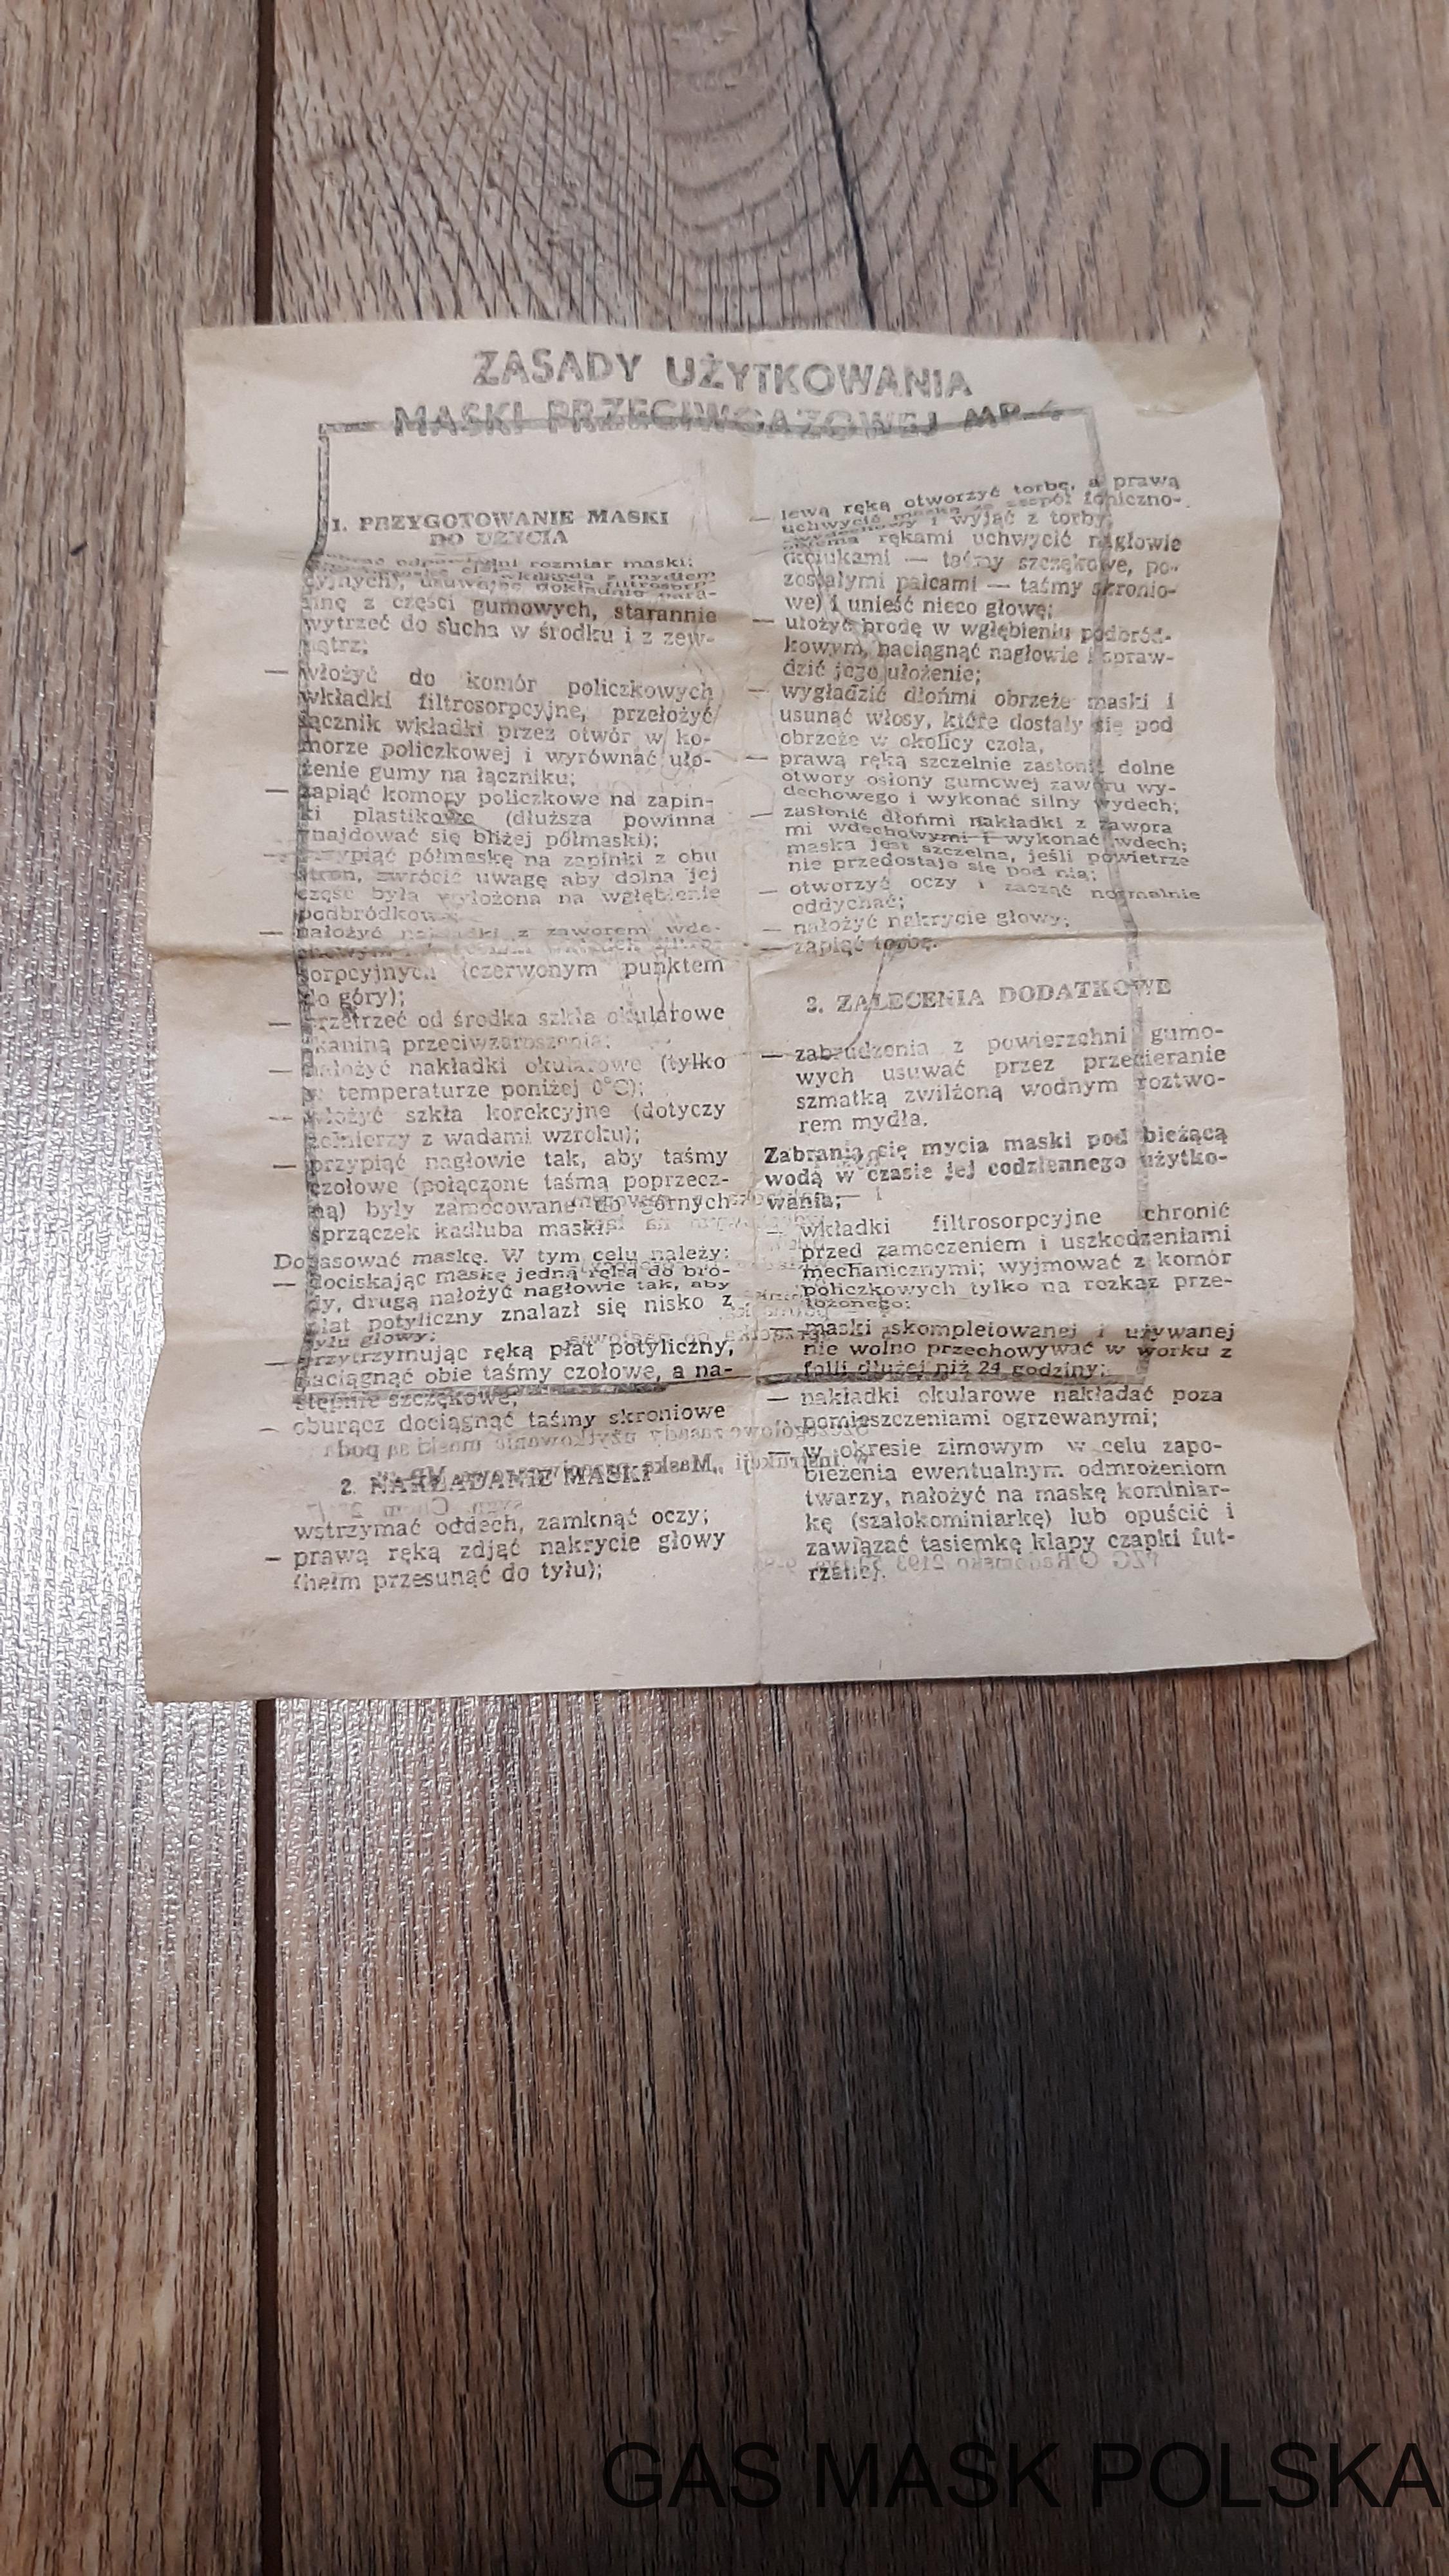 ZASADY UŻYTKOWANIA
MASKI PRZECIWGAZOWEJ MP-4
1. PRZYGOTOWANIE MASKI
DO UŻYCIA
rozmiar maski;
z mydłem
usuwając dokładnie para-
finę z części gumowych, starannie
wytrzeć do sucha w środku i z zew-
nątrz;
— włożyć do komór policzkowych
wkładki filtrosorpcyjne, przełożyć
łącznik wkładki przez otwór w ko-
morze policzkowej i wyrównać uło-
żenie gumy na łączniku;
— zapiąć komory policzkowe na zapin-
ki plastikowe (dłuższa powinna
znajdować się bliżej półmaski);
— przypiąć półmaskę na zapinki z obu
stron, zwrócić uwagę aby dolna jej
część była wyłożona na wgłębienie
podbródkowe
— nałożyć nakładki z zaworem wde-
chowym
sorpcyjnych (czerwonym punktem
do góry);
— przetrzeć od środka szkła okularowe
tkaniną przeciwzaroszenia;
— nałożyć nakładki okularowe (tylko
w temperaturze poniżej 0°C);
— włożyć szkła korekcyjne (dotyczy
żołnierzy z wadami wzroku);
— przypiąć nagłowie tak, aby taśmy
czołowe (połączone taśmą poprzecz-
ną) były zamocowane do górnych
sprzączek kadłuba maski.
Dopasować maskę. W tym celu należy:
— dociskając maskę jedną ręką do bro-
dy, drugą nałożyć nagłowie tak, aby
płat potyliczny znalazł się nisko z
tyłu głowy;
— przytrzymując ręką płat potyliczny,
naciągnąć obie taśmy czołowe, a na-
stępnie szczękowe;
— oburącz dociągnąć taśmy skroniowe
2. NAKŁADANIE MASKI
wstrzymać oddech, zamknąć oczy;
— prawą ręką zdjąć nakrycie głowy
(hełm przesunąć do tyłu);
— lewą ręką otworzyć torbę, a prawą
uchwycić maskę za zespół foniczno-
i wyjąć z torby;
rękami uchwycić nagłowie
(kciukami — taśmy szczękowe, po-
zostałymi palcami — taśmy skronio-
we) i unieść nieco głowę;
— ułożyć brodę w wgłębieniu podbród-
kowym, naciągnąć nagłowie i spraw-
dzić jego ułożenie;
— wygładzić dłońmi obrzeże maski i
usunąć włosy, które dostały się pod
obrzeże w okolicy czoła,
— prawą ręką szczelnie zasłonić dolne
otwory osłony gumowej zaworu wy-
dechowego i wykonać silny wydech;
— zasłonić dłońmi nakładki z zawora
mi wdechowymi i wykonać wdech;
maska jest szczelna, jeśli powietrze
nie przedostaje się pod nią;
— otworzyć oczy i zacząć normalnie
oddychać;
— nałożyć nakrycie głowy;
— zapiąć torbę.
3. ZALECENIA DODATKOWE
— zabrudzenia z powierzchni gumo-
wych usuwać przez przecieranie
szmatką zwilżoną wodnym roztwo-
rem mydła.
Zabrania się mycia maski pod bieżącą
wodą w czasie jej codziennego użytko-
wania;
— wkładki filtrosorpcyjne chronić
przed zamoczeniem i uszkodzeniami
mechanicznymi; wyjmować z komór
policzkowych tylko na rozkaz prze-
łożonego;
— maski skompletowanej i używanej
nie wolno przechowywać w worku z
folii dłużej niż 24 godziny;
— nakładki okularowe nakładać poza
pomieszczeniami ogrzewanymi;
— w okresie zimowym w celu zapo-
bieżenia ewentualnym odmrożeniom
twarzy, nałożyć na maskę kominiar-
kę (szalokominiarkę) lub opuścić i
zawiązać tasiemkę klapy czapki fut-
rzanej.
GAS MASK POLSKA